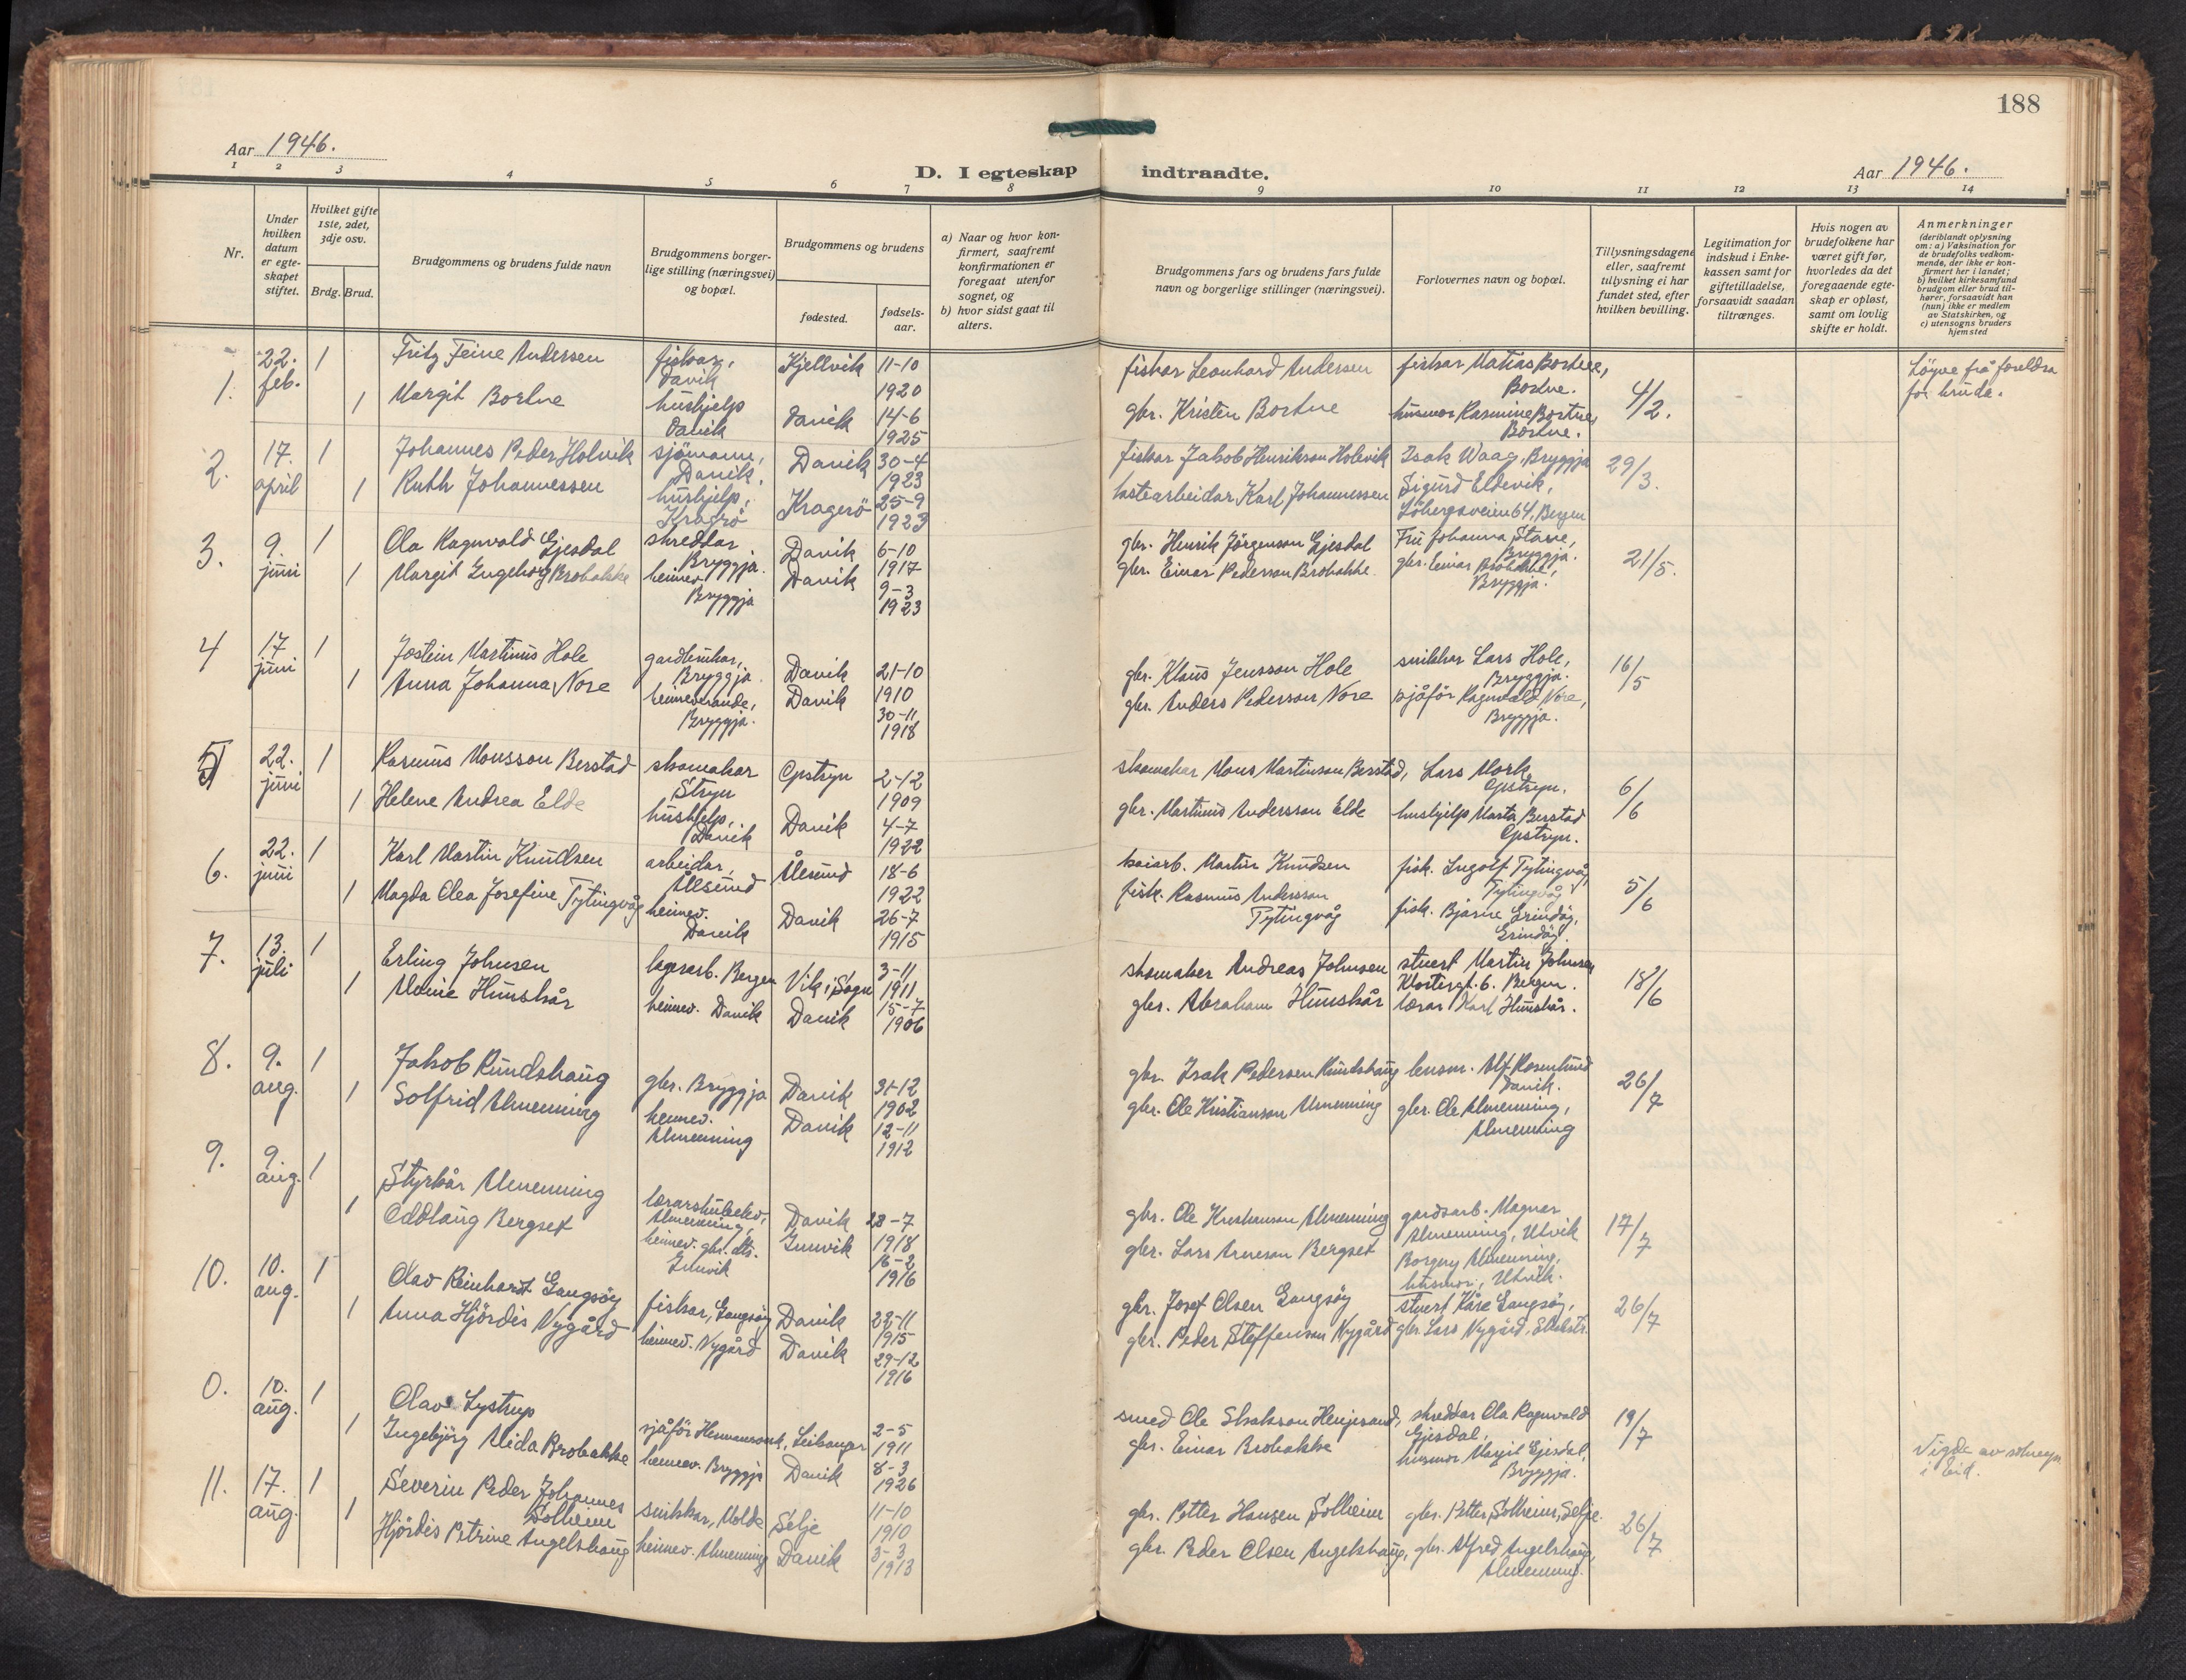 188
Aar 1946.
D. I egteskap indtraadte.
Aar 1946.
1 2 3 4 5 6 7 8 9 10 11 12 13 14
Nr.
Under hvilken datum er egte-skapet stiftet.
Hvilket gifte 1ste, 2det, 3dje osv.
Brdg. Brud.
Brudgommens og brudens fulde navn
Brudgommens borger-lige stilling (næringsvei) og bopæl.
Brudgommens og brudens
fødested.
fødsels-aar.
a) Naar og hvor kon-firmert, saafremt konfirmationen er foregaat utenfor sognet, og
b) hvor sidst gaat til alters.
Brudgommens fars og brudens fars fulde navn og borgerlige stillinger (næringsvei).
Forlovernes navn og bopæl.
Tillysningsdagene eller, saafremt tillysning ei har fundet sted, efter hvilken bevilling.
Legitimation for indskud i Enke-kassen samt for giftetilladelse, forsaavidt saadan tiltrænges.
Hvis nogen av brudefolkene har været gift før, hvorledes da det foregaaende egte-skap er opløst, samt om lovlig skifte er holdt.
Anmerkninger
(deriblandt oplysning om: a) Vaksination for de brudefolks vedkom-mende, der ikke er kon-firmert her i landet; b) hvilket kirkesamfund brudgom eller brud til-hører, forsaavidt han (hun) ikke er medlem av Statskirken, og c) utensogns bruders hjemsted
1. 22. feb. 1 Fritz Feine Andersen fiskar, Davik Kjellvik 11-10 1920 fiskar Leonhard Andersen fiskar Matias Bortne, Bortne. 4/2. Løyve frå foreldra for bruda.
1 Margit Bortne hushjelp Davik Davik 14-6 1925 gbr. Kristen Bortne husmor Rasmine Bortne, Bortne.
2. 17. april 1 Johannes Peder Holvik sjömann, Davik, Davik 30-4 1923 fiskar Jakob Henrikson Holevik Isak Waag, Bryggja 29/3.
1 Ruth Johannessen hushjelp, Kragrö Kragerö 25-9 1923 lastearbeidar Karl Johannessen Sigurd Eldevik, Löbergsveien 64, Bergen
3. 9. juni 1 Ola Ragnvald Gjesdal skreddar Bryggja. Davik 6-10 1917 gbr. Henrik Jörgenson Gjesdal Fru Johanna Starre, Bryggja. 21/5.
1 Margit Ingeborg Brobakke heimev Bryggja Davik 9-3 1923 gbr. Einar Pederson Brobakke. gbr. Einar Brobakke, Bryggja.
4 17 juni 1 Jostein Martinus Hole gardbrukar, Bryggja. Davik 21-10 1910 gbr. Klaus Jensson Hole snikkar Lars Hole, Bryggja. 16/5
1 Anna Johanna Nore heimeverande, Bryggja. Davik 30-11 1918 gbr. Anders Pederson Nore sjåför Ragnvald Nore, Bryggja.
5 22. juni 1 Rasmus Monsson Berstad skomakar Stryn Opstryn 2-12 1909 skomakar Mons Martinson Berstad, Lars Mork, Opstryn. 6/6
1 Helene Andrea Elde hushjelp, Davik Davik 4-7 1922 gbr. Martinus Andersson Elde hushjelp Marta Berstad Opstryn.
6. 22. juni 1 Karl Martin Knudsen arbeidar, Ålesund Ålesund 18-6 1922 kaiarb. Martin Knudsen fisk. Ingolf Tytingvåg, Tytingvåg 5/6
1 Magda Olea Josefine Tytingvåg heimev. Davik Davik 26-7 1915 fisk. Rasmus Andersson Tytingvåg fisk. Bjarne Grindöy, Grindöy.
7. 13. juli 1 Erling Johnsen lagerarb. Bergen Vik i Sogn 3-11 1911 skomaker Andreas Johnsen stuert Martin Johnsen Klostergt. 6. Bergen. 18/6
1 Malene Hunskår heimev. Davik Davik 15-7 1906 gbr. Abraham Hunskår lærar Karl Hunskår.
8. 9. aug. 1 Jakob Rundshaug gbr. Bryggja Davik 31-12 1902 gbr. Isak Pedersen Rundshaug lensm. Alf Rosenlund Davik. 26/7
1 Solfrid Almenning heimev. Almenning Davik 12-11 1912 gbr. Ole Kristianson Almenning gbr. Ole Almenning, Almenning
9. 9. aug. 1 Styrkår Almenning lærarskuleelev, Almenning, Davik 28-7 1918 gbr. Ole Kristianson Almenning gardsarb. Magnar Almenning, Utvik 17/7
1 Oddlaug Bergset heimev. gbr. dtr. Innvik Innvik 16-2 1916 gbr. Lars Arneson Bergset Borgny Almenning, husmor, Utvik.
10. 10. aug. 1 Olav Reinhardt Gangsöy fiskar, Gangsöy Davik 22-11 1915 gbr. Josef Olsen Gangsöy stuert Kåre Gangsöy, 26/7
1 Anna Hjördis Nygård heimev. Nygård Davik 29-12 1916 gbr. Peder Steffenson Nygård gbr. Lars Nygård,
0. 10. aug. 1 Olav Lystrup sjåför Hermansverk, Leikanger 2-5 1911 smed Ole skreddar Ola Ragnvald Gjesdal, 19/7
1 Ingebjörg Alida Brobakke heimev. Bryggja Davik 8-3 1926 gbr. Einar Brobakke husmor Margit Gjesdal, Bryggja. Vigde av soknepr i Eid.
11. 17. aug. 1 Severin Peder Johannes Solheim snikkar, Molde Selje 11-10 1910 gbr. Petter Hansen Solheim gbr. Petter Solheim, Selje. 26/7
1 Hjördis Petrine Angelshaug heimev. Almenning Davik 3-3 1913 gbr. Peder Olsen Angelshaug, gbr. Alfred Angelshaug, Almenning.